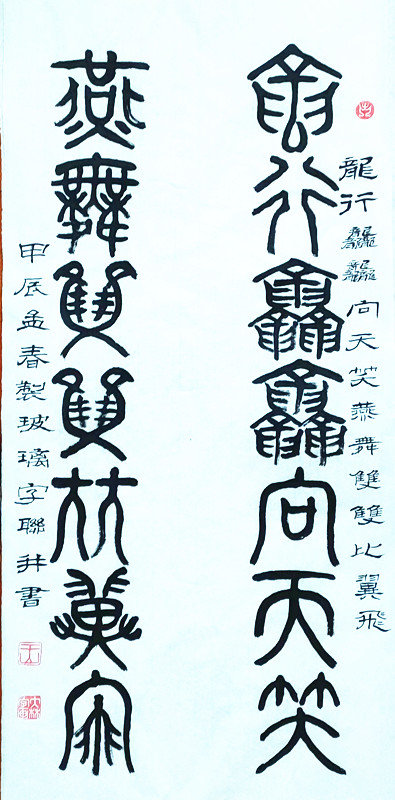 龍行龘龘向天笑燕舞雙雙比翼飛
龍行龘龘向天笑
燕舞雙雙比翼飛
甲辰孟春製玻璃字聯并書